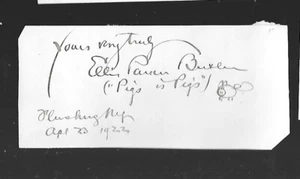 Yours very truly
Ellis Parker Butler
("Pigs is Pigs")
Flushing NY
Apr 23 1922